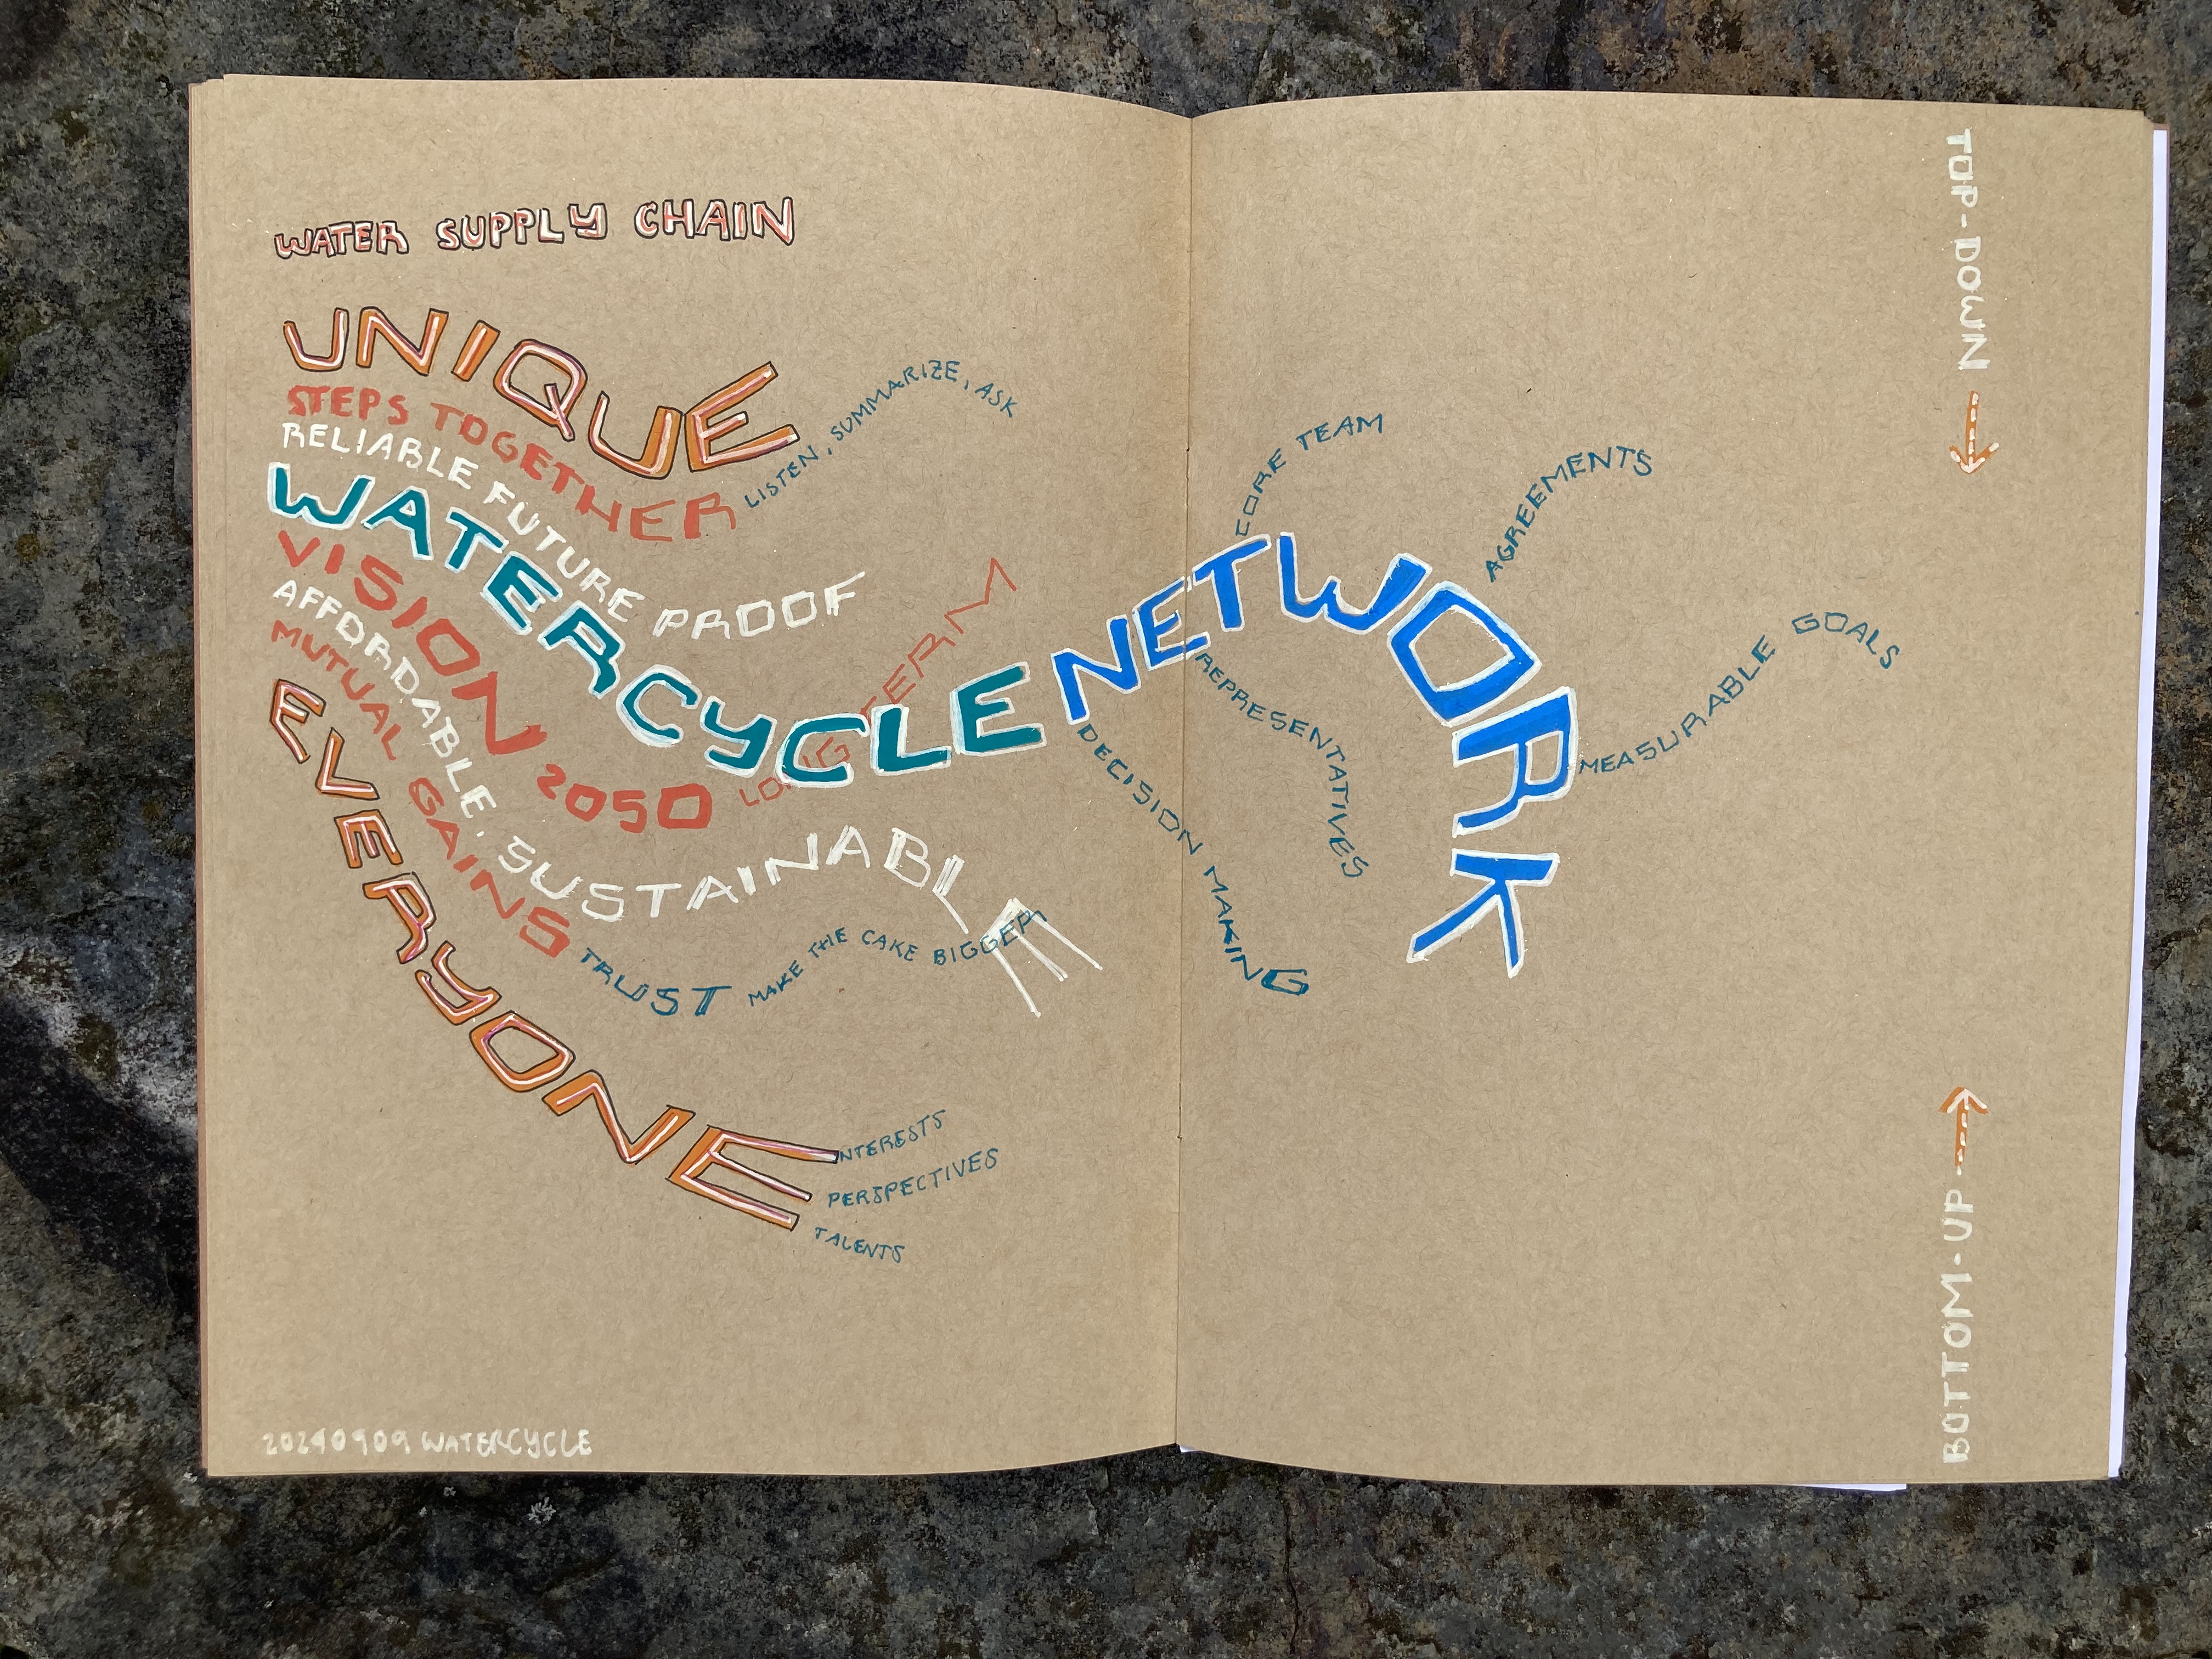 WATER SUPPLY CHAIN
UNIQUE
STEPS TOGETHER
LISTEN, SUMMARIZE, ASK
RELIABLE FUTURE PROOF
WATERCYCLE NETWORK
VISION 2050 LONG TERM
AFFORDABLE, SUSTAINABLE
MUTUAL GAINS TRUST MAKE THE CAKE BIGGER
EVERYONE
INTERESTS
PERSPECTIVES
TALENTS
CORE TEAM
AGREEMENTS
MEASURABLE GOALS
REPRESENTATIVES
DECISION MAKING
TOP-DOWN
BOTTOM-UP
20240909 WATERCYCLE